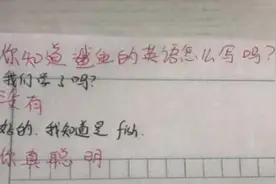 你知道鱼的英语怎么写吗?
我们学了吗?
没有
好的.我知道是 fish.
你真聪明